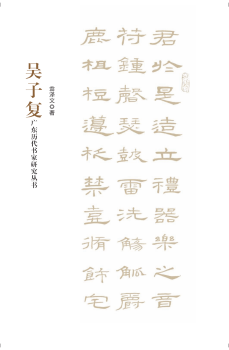 君於是造立禮器樂之音
符鍾磬瑟鼓雷洗觴觚爵
鹿柤梪籩柉禁壺脩飾宅
吴子复
翁泽文 著
广东历代书家研究丛书